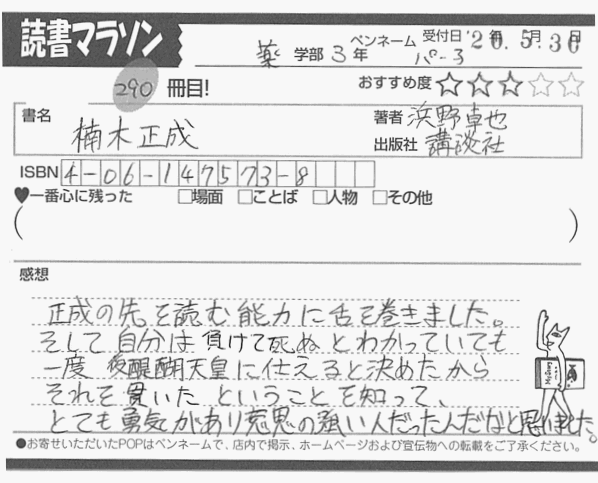 読書マラソン
薬 学部 3 年 ペンネーム パーコ 受付日 '20.5月30日
290 冊目! おすすめ度 ☆☆☆☆☆
書名 楠木正成 著者 浜野卓也
出版社 講談社
ISBN 4-06-147573-8
♥一番心に残った □場面 □ことば □人物 □その他
( )
感想
正成の先を読む能力に舌を巻きました。
そして自分は負けて死ぬとわかっていても
一度 後醍醐天皇に仕えると決めたから
それを貫いたということを知って、
とても勇気があり意思の強い人だったんだなと思いました。
●お寄せいただいたPOPはペンネームで、店内で掲示、ホームページおよび宣伝物への転載をご了承ください。